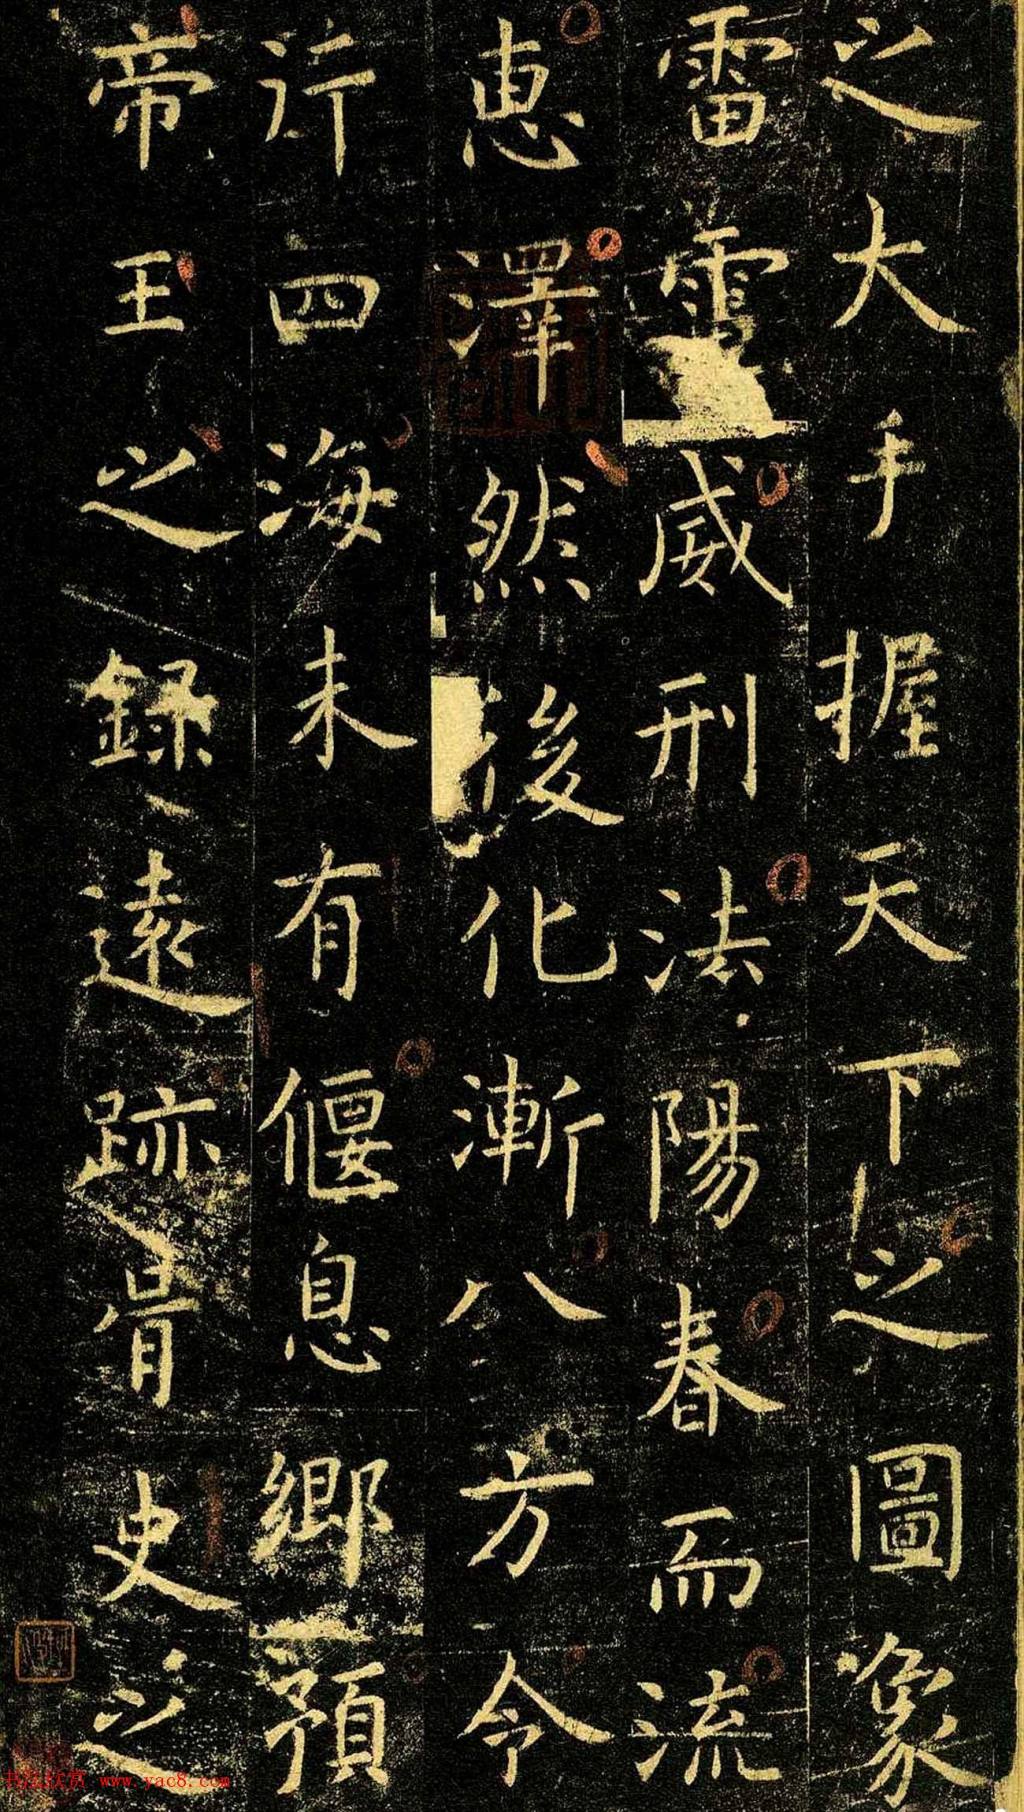 之大手握天下之圖象
雷電威刑法陽春而流
恵澤然後化漸八方令
行四海未有偃息鄉預
帝王之録遠跡胥史之
书法欣赏 www.yac8.com